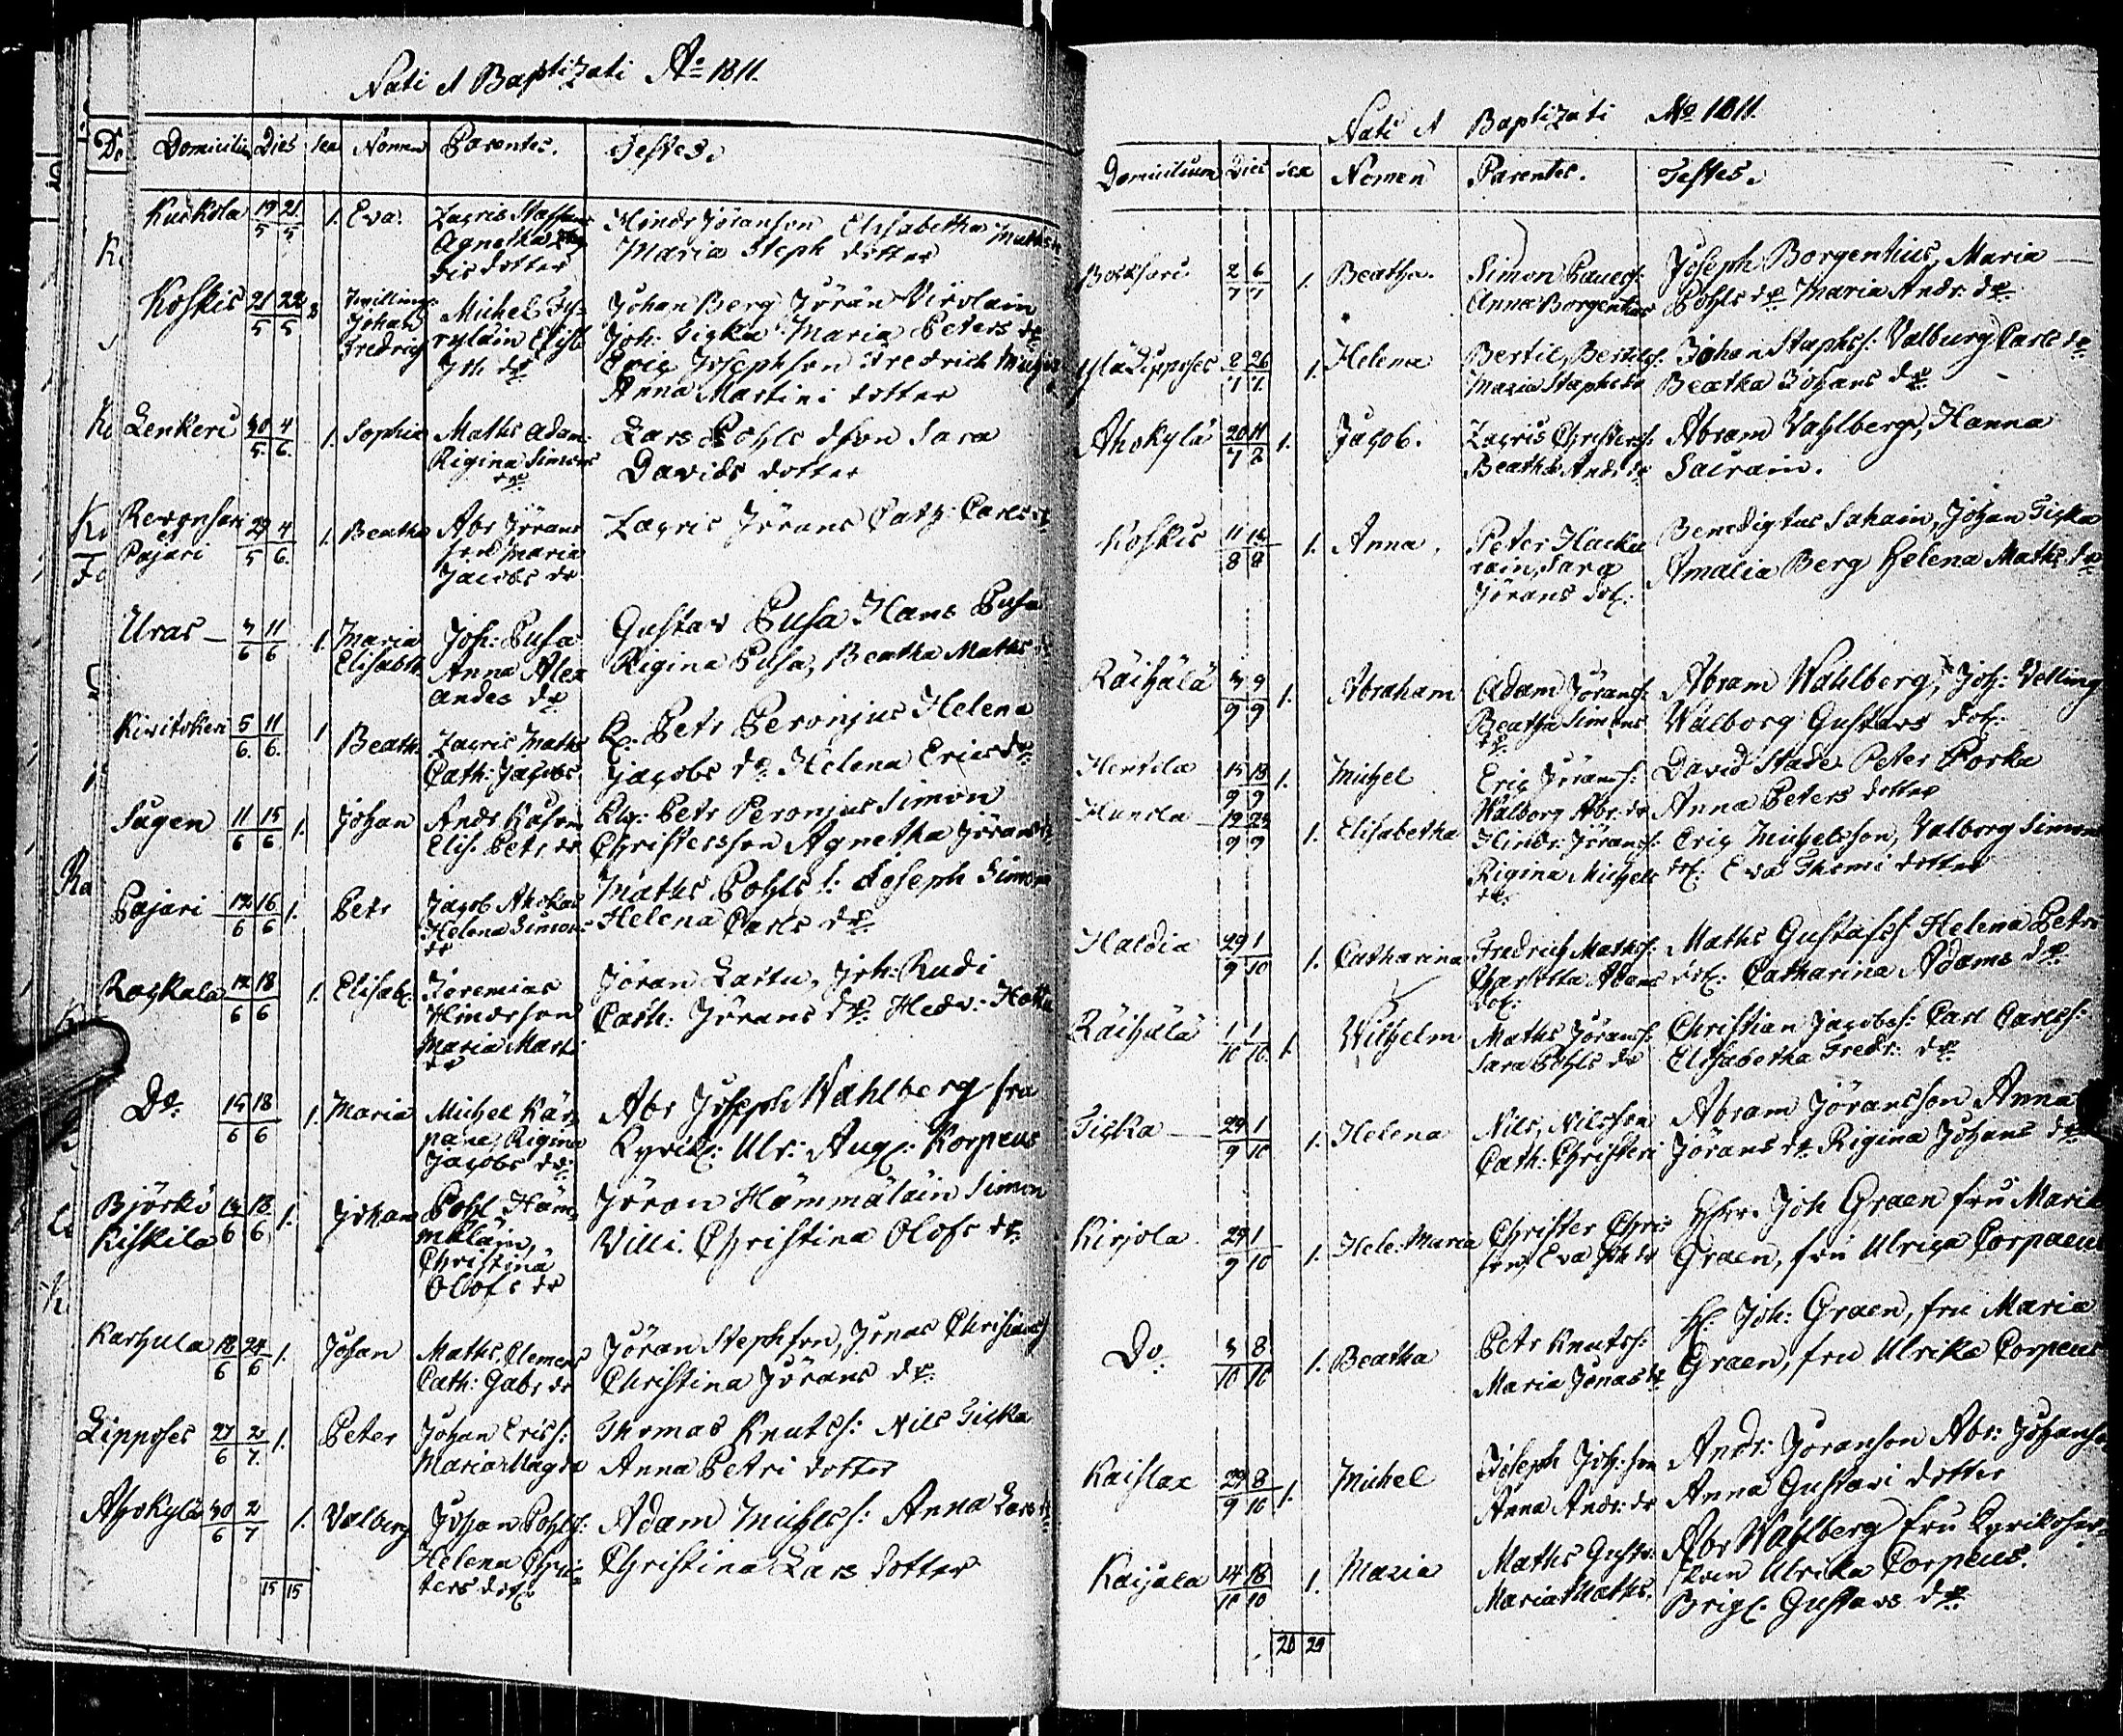 Nati et Baptizati Ao 1811.
Domicilium Dies Sex Nomen Parentes. Testes.
Kuckola 19/5 21/5 1. Eva.
Zacris Staffans
Agnetha
ris dotter
Hindr Jöranson Elisabetha Maths
Maria Steph dotter
Koskis 21/5 22/5 2
Twillings
Johan
Fredric
Michel
rylain Elisb
Joh. dr
Johan Berg Jöran Virolain
Joh: Ticka Maria Peters dr
Eric Josephson Fredrich Michels
Anna Martini dotter
Lenkeri 30/5 4/6 1. Sophia
Maths Adam
Rigina Simons
dr
Lars Pohls dson Sara
Davids dotter
Pajari 29/5 4/6 1. Beatha
Abr Jörans
son Maria
Jacobs dr
Zacris Jörans Cath: Carls dr
Uras 3/6 11/6 1. Maria
Elisabeth
Joh: Pusa
Anna Alex
andes dr
Gustav Pusa Hans Pusa
Rigina Pusa, Beatha Maths dr
Kivitoken 5/6 11/6 1 Beath.
Zacris Maths
Cath: Jacobs
K: Petr Peronjus Helena
Jacobs dr Helena Erics dr
Sagen 11/6 15/6 1. Johan
Andr
Elis. Petr dr
Klo: Petr Peronjus Simon
Christersson Agnetha Jörans dr
Pajari 12/6 16/6 1. Petr
Jacob Ahokas
Helena Simons
dr
Maths Pohls s: Joseph Simon
Helena Carls dr
Rockala 12/6 18/6 1. Elisab:
Jeremias
Hinderson
Maria Mart:
dr
Jöran Lartu, Joh: Rudi
Cath: Jörans dr Hedv: Hotta
Do 15/6 18/6 1. Maria
Michel Kär
pane, Rigina
Jacobs dr
Abr Joseph Wahlberg fru
Kyrik: Ulr: Aug: Korpeus
Björkö
Kiskila 14/6 18/6 1. Johan
Pohl Häm
mäläin,
Christina
Olofs dr
Jöran Hämmäläin Simon
Villi. Christina Olofs dr
Karhula 18/6 24/6 1. Johan
Maths. Clemens
Cath: Gabr dr
Jöran Stephson, Jonas Christians
Christina Jörans dr
Lippoſes 27/6 2/7 1. Peter
Johan Erics:
Maria Magdr
Thomas Knuts: Nils Ticka
Anna Petri dotter
Ahokylä 30/6 2/7 1. Valberg
Johan Pohls:
Helena Chris
ters dr
Adam Michels: Anna Lars dr
Christina Lars dotter
15 15
Nati et Baptizati Ao 1811.
Domicilium Dies Sex Nomen Parentes. Testes.
2/7 6/7 1. Beatha
Simon Pauls:
Anna Borgenthius
Joseph Borgenthius, Maria
Pohls dr Maria Andr. dr
Yläsippoſes 2/7 26/7 1. Helena
Bertil Bertils:
Maria Stephs dr
Johan Stephs: Valburg Carls dr
Beatha Johans dr
Ahokylä 20/7 11/8 1. Jacob.
Zacris Christers:
Beatha Andr dr
Abram Vahlberg, Hanna
Sairain.
Koskis 11/8 14/8 1. Anna,
Peter Hacka
rain, Sara
Jörans dot:
Benedictus Sahain, Johan Ticka
Amalia Berg Helena Maths dr
Räihälä 3/9 9/9 1. Abraham
Adam Jörans:
Beatha Simons
dr
Abram Wahlberg, Joh: Velling
Walborg Gustavs dot:
Hentila 15/9 18/9 1. Michel
Eric Jörans:
Walborg Abr: dr
David Stade Peter Porka
Anna Peters dotter
Hunola 19/9 23/9 1. Elisabetha
Hindr: Jörans:
Rigina Michels
dr.
Eric Michelsson, Valborg Simons
dot: Eva Thoms dotter
Haldia 29/9 1/10 1. Catharina
Fredrich Maths:
Charlotta Adams
dot:
Maths Gustafs: Helena Petri
dot: Catharina Adams dr
Räihälä 1/10 1/10 1. Wilhelm
Maths Jörans:
Sara Pohls dr
Christian Jacobs: Carl Carls:
Elisabetha Fredr: dr
Ticka 29/9 1/10 1. Helena
Nils Nilsson
Cath: Christeri
Abram Jöransson Anna
Jörans dr Rigina Johans dr
Kirjola 29/9 1/10 1. Hele. Maria
Christer Chris
son, Eva Joh dr
Herr. Joh Graen fru Maria
Graen, fru Ulrica Corpaeus
Do. 3/10 8/10 1. Beatha
Petr Knuts:
Maria Jonas dr
H: Joh: Graen, fru Maria
Graen, fru Ulrika Corpeus
Kaislax 29/9 8/10 1. Michel
Joseph Joh: son
Anna Andr: dr
Andr: Joranson Abr: Johanson
Anna Gustavi dotter
Kaijala 14/10 18/10 1. Maria
Maths Gustv:
Maria Maths.
Abr Wahlberg fru Kyrikoher-
Ulrika Corpeus.
Brig: Gustavs dr
20 29